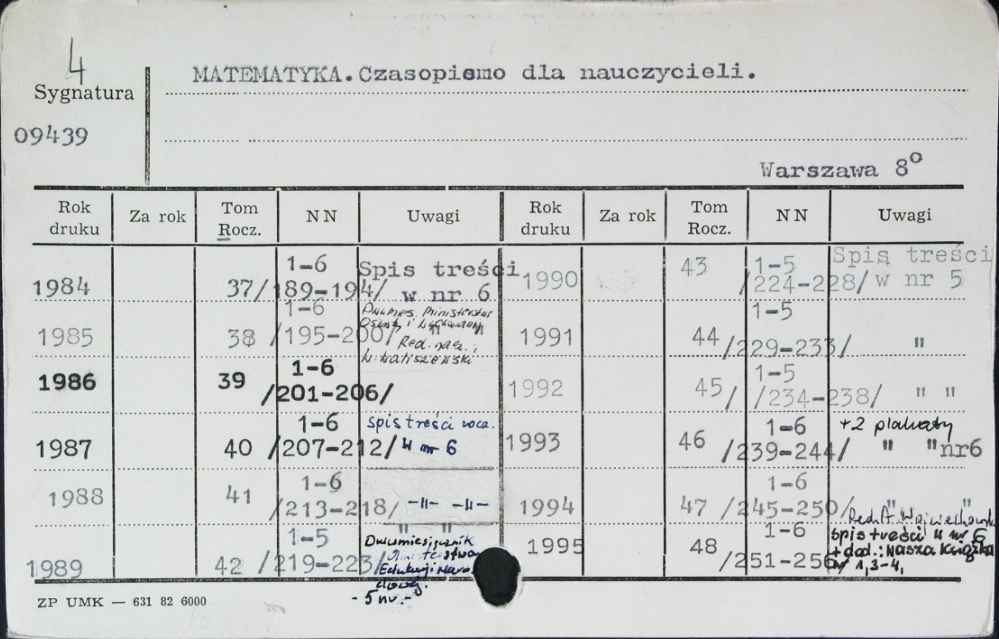 4
MATEMATYKA. Czasopismo dla nauczycieli.
Sygnatura
09439
Warszawa 8°
Rok druku Za rok Tom Rocz. NN Uwagi Rok druku Za rok Tom Rocz. NN Uwagi
1984 37 1-6 /189-194/ Spis treści w nr 6
1985 38 1-6 /195-200/ " Dwumies. Ministerstwa Red. nacz.:
1986 39 1-6 /201-206/
1987 40 1-6 /207-212/ spis treści rocz. w nr 6
1988 41 1-6 /213-218/ -"- -"-
1989 42 1-5 /219-223/ " " Dwumiesięcznik Ministerstwa Edukacji Narodowej. - 5 nr.-
1990 43 1-5 /224-228/ Spis treści w nr 5
1991 44 1-5 /229-233/ "
1992 45/ 1-5 /234-238/ " "
1993 46 1-6 /239-244/ +2 plakaty " "nr6
1994 47 1-6 /245-250/ " "
1995 48 1-6 /251-256/ spis treści w nr 6 + dod.: Nasza Książka nr 1,3-4,
ZP UMK — 631 82 6000